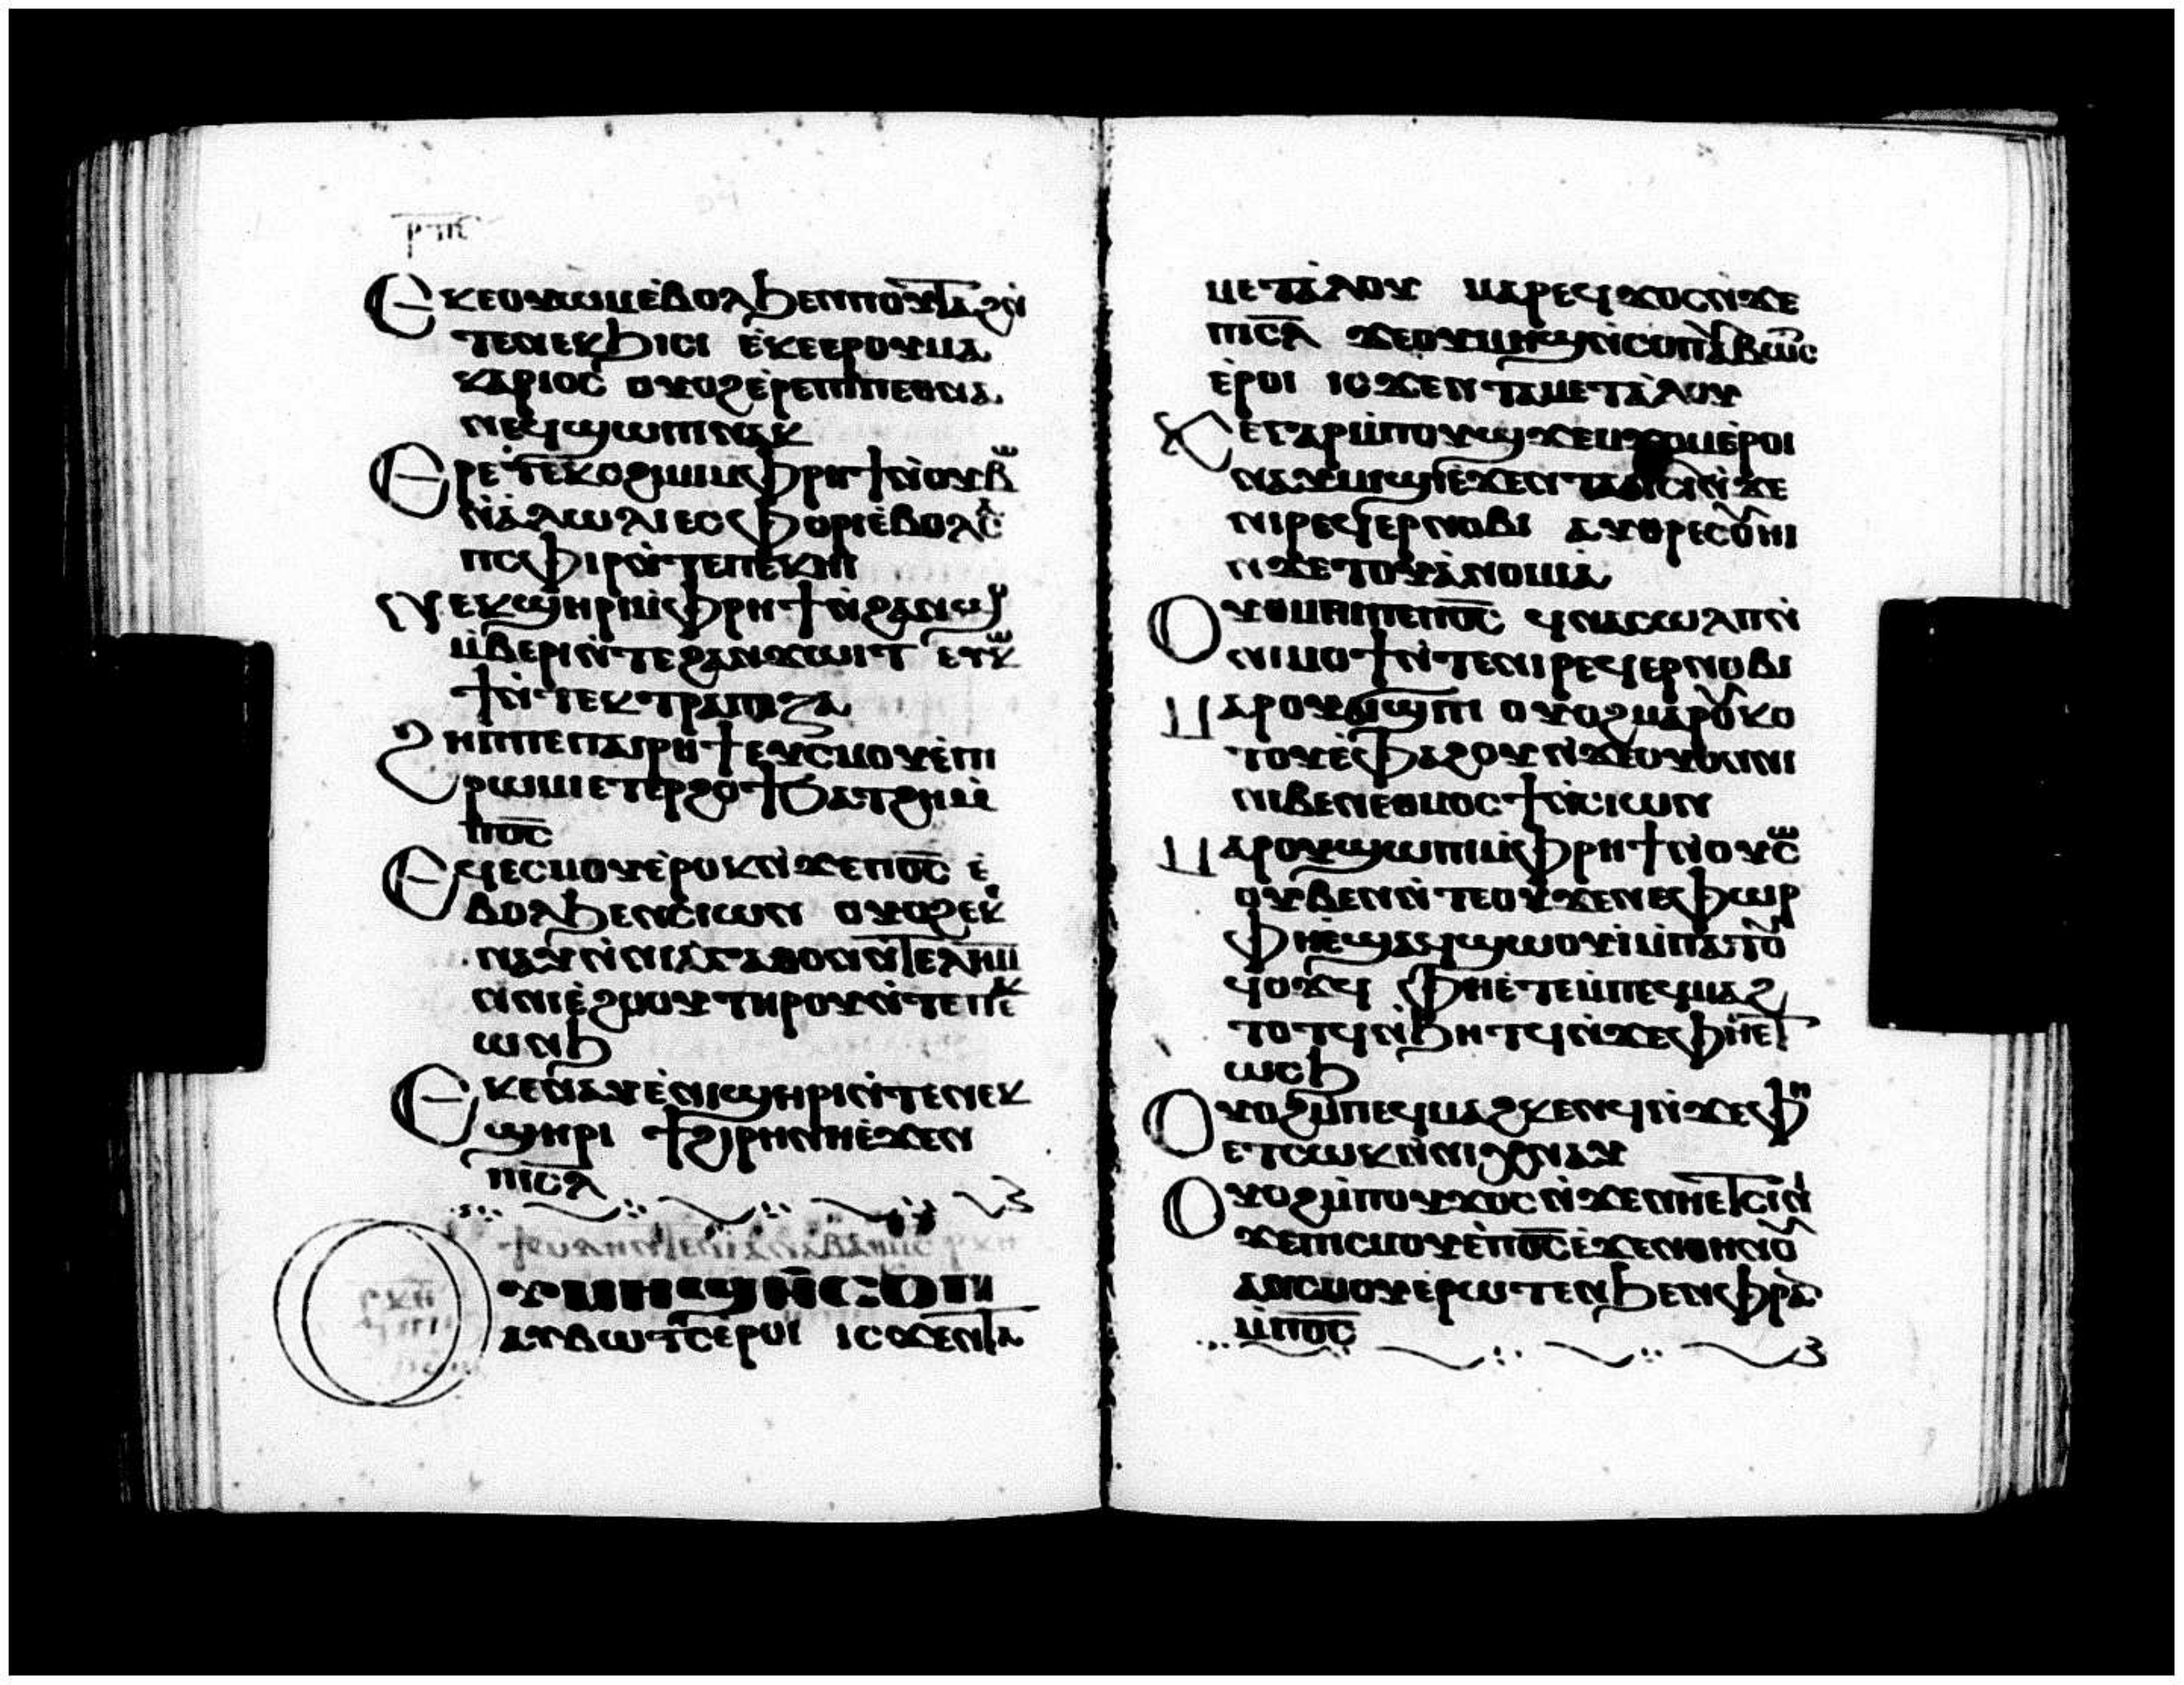 ⲣⲡⲏ
Ⲉⲕⲉⲟⲩⲱⲙⲉ̀ⲃⲟⲗϧⲉⲛⲛⲟⲩⲧⲁϩⲛ̀
ⲧⲉⲛⲉⲕϧⲓⲥⲓ ⲉ̀ⲕⲉⲉⲣⲟⲩⲙⲁ
ⲕⲁⲣⲓⲟⲥ ⲟⲩⲟϩⲉ̀ⲣⲉⲡⲓⲡⲉⲑⲛⲁ
ⲛⲉϥϣⲱⲡⲓⲛⲁⲕ
Ⲉⲣⲉ̀ⲧⲉⲕⲥϩⲓⲙⲓⲙ̀ⲫⲣⲏϯⲛ̀ⲟⲩⲃⲱ
ⲛ̀ⲁ̀ⲗⲱⲗⲓⲉⲥⲫⲟⲣⲓⲉ̀ⲃⲟⲗⲥⲁ
ⲛⲥⲫⲓⲣⲟⲓⲛ̀ⲧⲉⲡⲉⲕⲏⲓ
Ⲛⲉⲕϣⲏⲣⲓⲙ̀ⲫⲣⲏϯⲛ̀ϩⲁⲛⲱ
ⲙ̀ⲃⲉⲣⲓⲛ̀ⲧⲉϩⲁⲛϫⲱⲓⲧ ⲉⲩⲕⲱ
ϯⲛ̀ⲧⲉⲕⲧⲣⲁⲡⲉⲍⲁ
Ϩⲏⲡⲡⲉⲡⲁⲓⲣⲏϯⲉⲩⲥⲙⲟⲩⲉ̀ⲡⲓ
ⲣⲱⲙⲓⲉⲧⲉⲣϩⲟϯϧⲁⲧϩⲏⲙ̀
ⲡⲟ̅ⲥ̅
Ⲉϥⲉⲥⲙⲟⲩⲉ̀ⲣⲟⲕⲛ̀ϫⲉⲡⲟ̅ⲥ̅ ⲉ̀
ⲃⲟⲗϧⲉⲛⲥⲓⲱⲛ ⲟⲩⲟϩⲉⲕⲉ̀
ⲛⲁⲩⲛ̀ⲛⲓⲁ̀ⲅⲁⲑⲟⲛⲛ̀ⲧⲉⲗ̅ⲏ̅ⲙ̅
ⲛ̀ⲛⲓⲉ̀ϩⲟⲟⲩⲧⲏⲣⲟⲩⲛ̀ⲧⲉⲡⲉⲕ
ⲱⲛϧ
Ⲉⲕⲉⲛⲁⲩⲉ̀ⲛⲓϣⲏⲣⲓⲛ̀ⲧⲉⲛⲉⲕ
ϣⲏⲣⲓ ϯϩⲓⲣⲏⲛⲏⲉ̀ϫⲉⲛ
ⲡⲓⲥ̅ⲗ̅
Ⲟⲩⲙⲏϣⲛ̀ⲥⲟⲡ
ⲁⲩⲃⲱⲧⲥⲉ̀ⲣⲟⲓ ⲓⲥϫⲉⲛⲧⲁ
ⲙⲉⲧⲁ̀ⲗⲟⲩ ⲙⲁⲣⲉϥϫⲟⲥⲛ̀ϫⲉ
ⲡⲓⲥ̅ⲗ̅ ϫⲉⲟⲩⲙⲏϣⲛ̀ⲥⲟⲡⲁⲩⲃⲱⲧⲥ
ⲉ̀ⲣⲟⲓ ⲓⲥϫⲉⲛⲧⲁⲙⲉⲧⲁ̀ⲗⲟⲩ
Ϫⲉⲅⲁⲣⲙ̀ⲡⲟⲩϣϫⲉⲙϫⲟⲙⲉ̀ⲣⲟⲓ
ⲛⲁⲩⲙⲓϣⲓⲉ̀ϫⲉⲛⲧⲁϭⲓⲥⲓⲛ̀ϫⲉ
ⲛⲓⲣⲉϥⲉⲣⲛⲟⲃⲓ ⲁⲩⲑⲣⲉⲥⲟⲩⲉⲓ
ⲛ̀ϫⲉⲧⲟⲩⲁ̀ⲛⲟⲙⲓⲁ
Ⲟⲩⲑⲙⲏⲓⲡⲉⲡⲟ̅ⲥ̅ ϥⲛⲁⲥⲱⲗⲡⲛ̀
ⲛⲓⲙⲟϯⲛ̀ⲧⲉⲛⲓⲣⲉϥⲉⲣⲛⲟⲃⲓ
Ⲙⲁⲣⲟⲩϭⲓϣⲓⲡⲓ ⲟⲩⲟϩⲙⲁⲣⲟⲩⲕⲟ
ⲧⲟⲩⲉ̀ⲫⲁϩⲟⲩⲛ̀ϫⲉⲟⲩⲟⲛⲛⲓ
ⲛⲓⲃⲉⲛⲉⲑⲙⲟⲥϯⲛ̀ⲥⲓⲱⲛ
Ⲙⲁⲣⲟⲩϣⲱⲡⲓⲙ̀ⲫⲣⲏϯⲛ̀ⲟⲩⲥⲱ
ⲟⲩⲃⲉⲛⲛ̀ⲧⲉⲟⲩϫⲉⲛⲉⲫⲱⲣ
ⲫⲏⲉ̀ϣⲁϥϣⲱⲟⲩⲓ̀ⲙ̀ⲡⲁⲧⲟⲩ
ϥⲟϫϥ ⲫⲏⲉ̀ⲧⲉⲙ̀ⲡⲉϥⲙⲁϩ
ⲧⲟⲧϥⲛ̀ϧⲏⲧϥⲛ̀ϫⲉⲫⲏⲉⲧ
ⲱⲥϧ
Ⲟⲩⲟϩⲙ̀ⲡⲉϥⲙⲁϩⲕⲉⲛϥⲛ̀ϫⲉⲫⲏ
ⲉⲧⲥⲱⲕⲛ̀ⲛⲓϫⲛⲁⲩ
Ⲟⲩⲟϩⲙ̀ⲡⲟⲩϫⲟⲥⲛ̀ϫⲉⲛⲏⲉⲧⲥⲓⲛⲓ
ϫⲉⲡⲓⲥⲙⲟⲩⲉ̀ⲡⲟ̅ⲥ̅ⲉ̀ϫⲉⲛⲑⲏⲛⲟⲩ
ⲁⲛⲥⲙⲟⲩⲉ̀ⲣⲱⲧⲉⲛϧⲉⲛⲫⲣⲁⲛ
ⲙ̀ⲡⲟ̅ⲥ̅